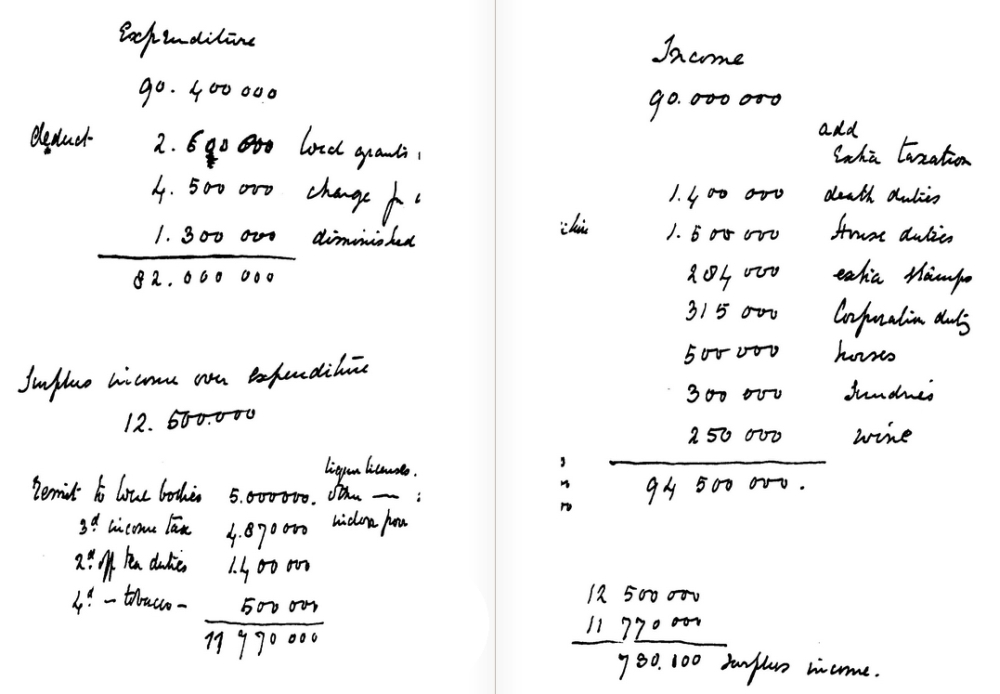 Expenditure
90.400 000
deduct 2.600 000 local grants
4.500 000 change for
1.300 000 diminished
82.000 000
Surplus income over expenditure
12.500.000
liquor licenses.
Remit to local bodies 5.000000. other —
3d income tax 4.870000
2d off tea duties 1.400 000
4d — tobacco — 500 000
11 770 000
Income
90.000 000
add
Extra taxation
1.400 000 death duties
1.500 000 House duties
284 000 extra stamps
315 000 Corporation duty
500 000 horses
300 000 Sundries
250 000 wine
94 500 000.
12 500 000
11 770 000
730.100 surplus income.